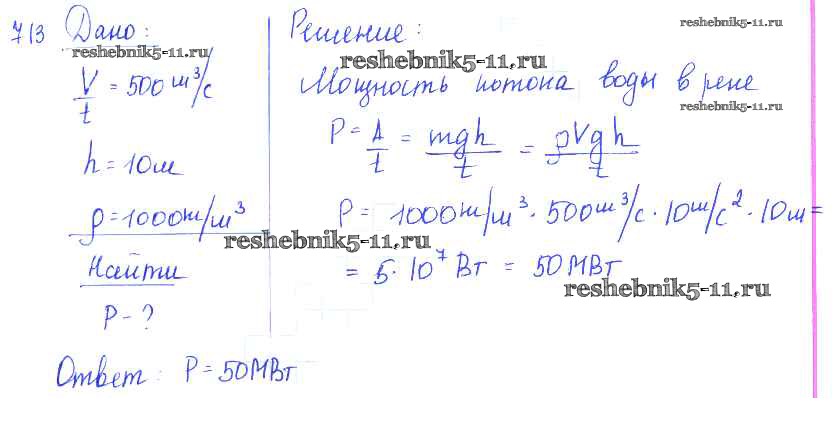 713 Дано:
reshebnik5-11.ru
V/t = 500 м³/с
h = 10м
ρ = 1000кг/м³
Найти
P - ?
Решение:
reshebnik5-11.ru
reshebnik5-11.ru
Мощность потока воды в реке
reshebnik5-11.ru
P = A/t = mgh/t = ρVgh/t
P = 1000кг/м³ · 500м³/с · 10м/с² · 10м =
reshebnik5-11.ru
= 5·10⁷ Вт = 50МВт
reshebnik5-11.ru
Ответ: P = 50МВт